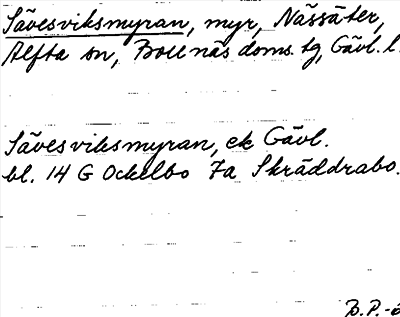 Sävesviksmyran, myr, Nässäter,
Alfta sn, Bollnäs doms. tg, Gävl. l.
Sävesviksmyran, ek Gävl.
bl. 14 G Ockelbo 7a Skräddrabo.
B.P.-6